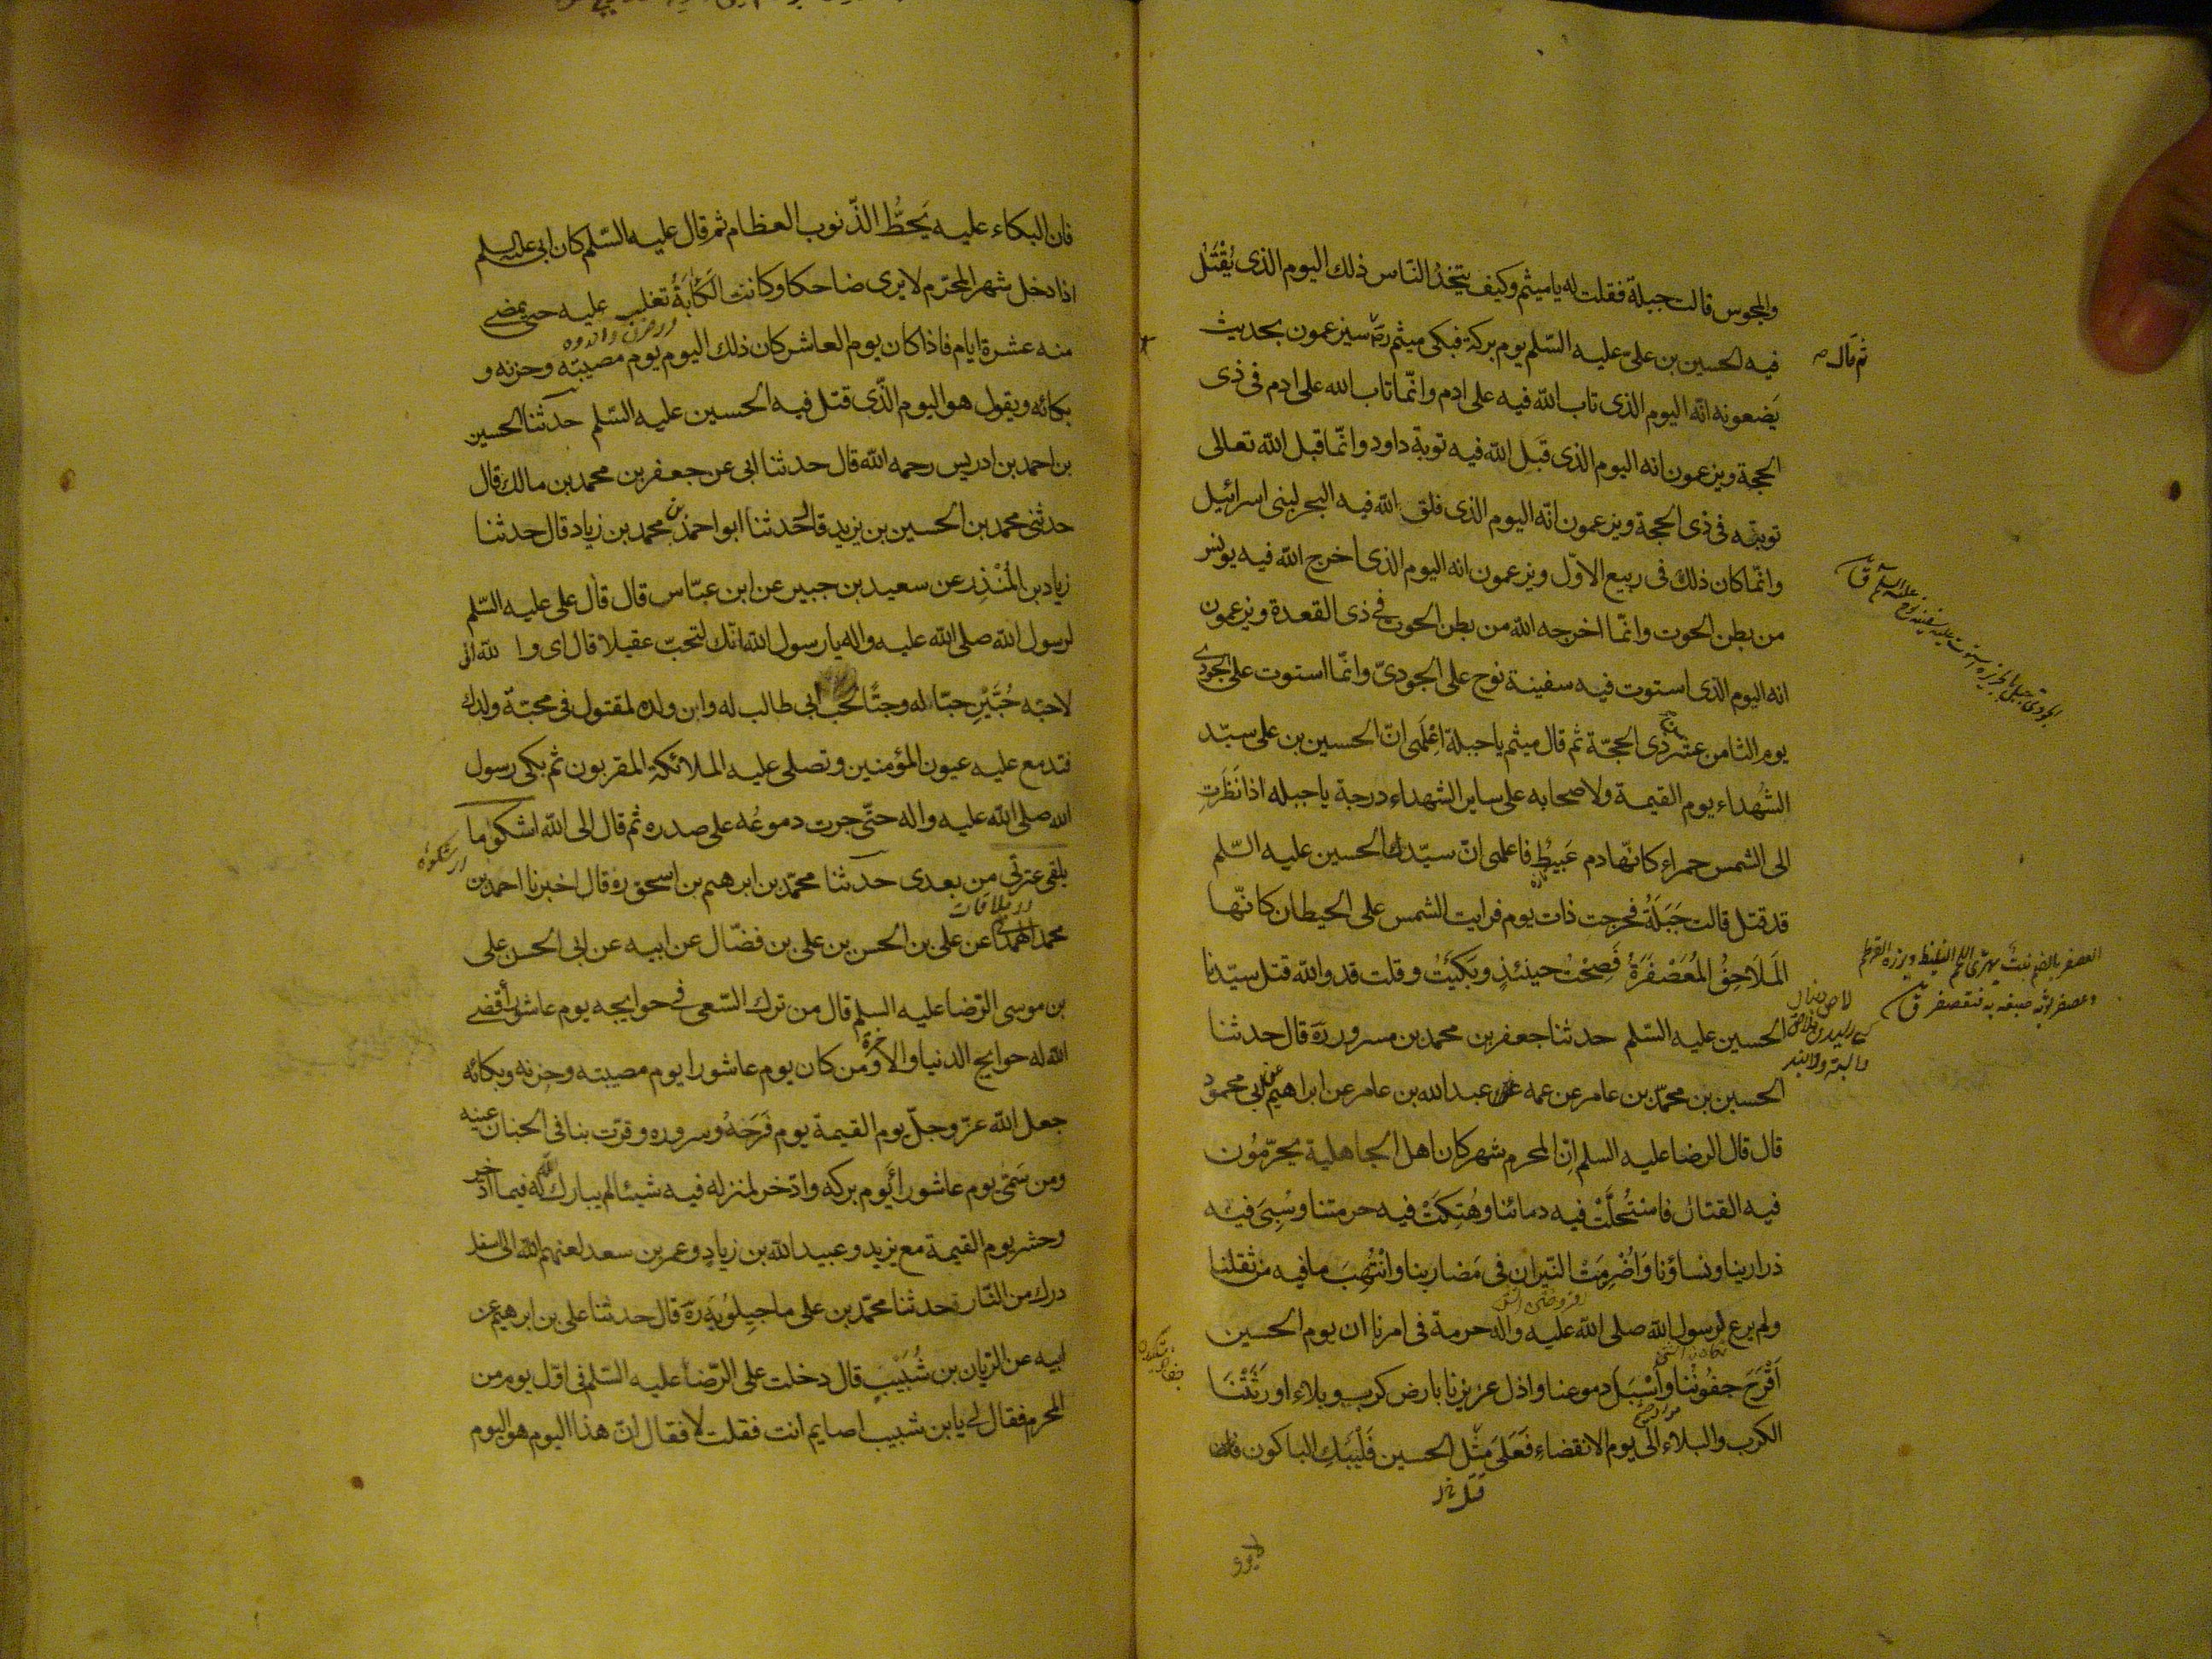 والمجوس قالت جبلة فقلت له يا ميثم وكيف يتخذ الناس ذلك اليوم الذى يُقْتَلُ
فيه الحسين بن علىّ عليه السّلم يوم بركة فبكى ميثم ره سيزعمون بحديث
ثم قال
يَضعونه انّه اليوم الذى تاب الله فيه على ادم وانّما تاب الله على ادم فى ذى
الحجة ويزعمون انه اليوم الذى قَبَل الله فيه توبة داود وانّما قبل الله تعالى
توبته فى ذى الحجة ويزعمون انّه اليوم الذى فلق الله فيه البحر لبنى اسرائيل
وانّما كان ذلك فى ربيع الاوّل ويزعمون انه اليوم الذى اخرج الله فيه يونس
من بطن الحوت وانّما اخرجه الله من بطن الحوت فى ذى القعدة ويزعمون
انه اليوم الذى استوت فيه سفينة نوح على الجودىّ وانّما استوت على الجودى
يوم الثامن عشر ذى الحجّة ثم قال ميثم يا جبلة اِعْلَمى انّ الحسين بن على سيّد
الشُهداء يوم القيمة ولاصحابه على ساير الشهداء درجة يا جبله اذا نَظَرَتِ
الى الشمس حمراء كانّها دم عَبيْطٍ فاعلمى انّ سيّدك الحسين عليه السّلم
قد قتل قالت جَبَلَةُ فخرجت ذات يوم فرايت الشمس على الحيطان كانّها
المَلَاحِفُ المُعَصْفَرَةُ فَصِحْتُ حينئذٍ وبَكَيْتُ وقلت قد والله قتل سيّدنا
الحسين عليه السّلم حدثنا جعفر بن محمد بن مسرور ره قال حدثنا
الحسين بن محمّد بن عامر عن عمه عبد الله بن عامر عن ابراهيم بن ابى محمود
قال قال الرضا عليه السلم اِنّ المحرم شهر كان اهل الجاهلية يحرّمُون
فيه القتال فاستُحلَّتْ فيه دمائنا وهُتِكَتْ فيه حرمتنا وسُبِىَ فيه
ذرارينا ونساؤنا وَاُضْرِمَتْ النّيران فى مَضاربنا وانْتُهِبَ ما فيه من ثقلنا
ولم يرع لرسول الله صلى الله عليه واله حرمة فى امرنا ان يوم الحسين
اَقْرَحَ جفُونَنا وأَسْبَلَ دموعنا واذل عزيزنا بارض كرب وبلاء اورَثَتْنَا
الكرب والبلاء الى يوم الانقضاء فَعَلَى مِثْلِ الحسين فَلْيَبْكِ الباكون
فان البكاء عليه يَحُطُّ الذّنوب العظام ثم قال عليه السّلم كان ابى عليه السلم
اذا دخل شهر المحرّم لا يرى ضاحكا وكانت الكَأبَةُ تغلب عليه حتى يمضى
منه عشرة ايام فاذا كان يوم العاشر كان ذلك اليوم يوم مصيبته وحزنه و
بكائه ويقول هو اليوم الّذى قتل فيه الحسين عليه السّلم حدثنا الحسين
بن احمد بن ادريس رحمه الله قال حدثنا ابى عن جعفر بن محمد بن مالك قال
حدثنى محمد بن الحسين بن يزيد قال حدثنا ابو احمد بن محمد بن زياد قال حدثنا
زياد بن المُنْذِر عن سعيد بن جبير عن ابن عبّاس قال قال على عليه السّلم
لرسول الله صلى الله عليه واله يا رسول الله انّك لتحبّ عقيلا قال اى والله انى
لاحبّه حُبَّيْنِ حبّا له وحبًّا لحب ابى طالب له وابن ولده لمقتول فى محبّة ولدك
فتدمع عليه عيون المؤمنين وتصلى عليه الملائكة المقربون ثم بكى رسول
الله صلى الله عليه واله حتّى جرت دموعُه على صدره ثم قال الى الله اشكو ما
يلقى عترتى من بعدى حدثنا محمّد بن ابرهيم بن اسحق ره قال اخبرنا احمد بن
محمد الهمدانى عن على بن الحسن بن على بن فضّال عن ابيه عن ابى الحسن على
بن موسى الرّضا عليه السلم قال من ترك السّعى فى حوايجه يوم عاشورا قضى
الله له حوايج الدنيا والاخرة ومن كان يوم عاشورا يوم مصيبته وحزنه وبكائه
جعل الله عزّ وجلّ يوم القيمة يوم فَرَحَهُ وسروره وقرّت بنا فى الجنان عينه
ومن سَمّى يوم عاشورا يَوم بركه وادّخر لمنزله فيه شيئا لم يبارك الله له فيما ادّخر
وحشر يوم القيمة مع يزيد وعبيد الله بن زيادٍ وعمر بن سعد لعنهم الله الى اسفل
درك من النّار حدثنا محمّد بن على ماجيلوُيَه ره قال حدثنا على بن ابرهيم عن
ابيه عن الريّان بن شُبَيْبٍ قال دخلت على الرّضا عليه السّلم فى اوّل يوم من
المحرم فقال لى يا بن شبيب اصايم انت فقلت لا فقال انّ هذا اليوم هو اليوم